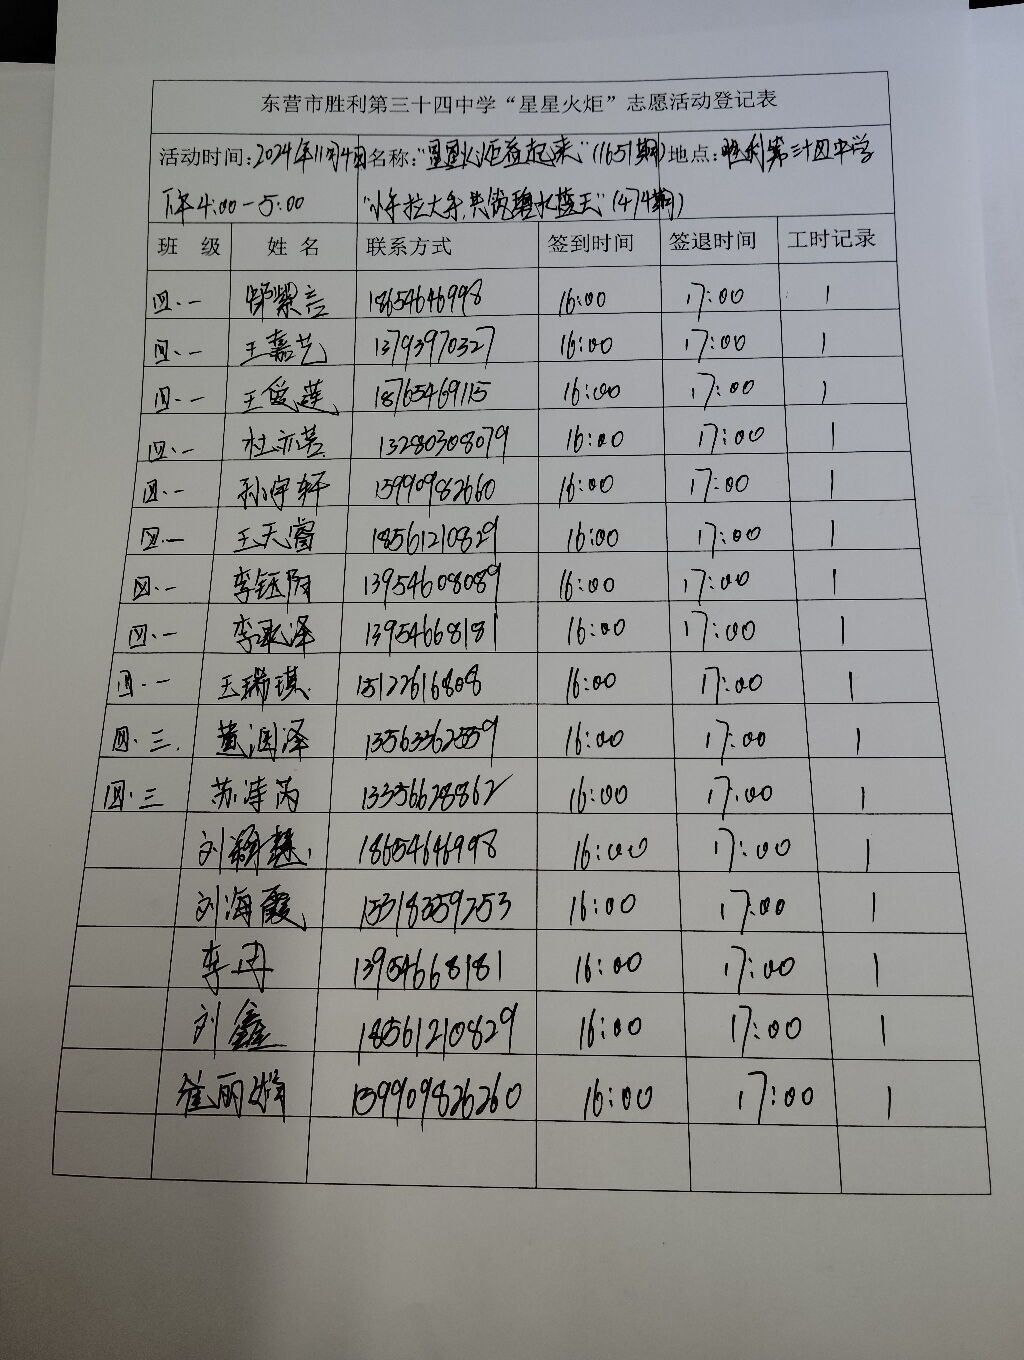 东营市胜利第三十四中学“星星火炬”志愿活动登记表
活动时间:2024年11月4日 名称:“星星火炬益起来”(1651期) 地点:胜利第三十四中学
下午4:00-5:00 “小手拉大手,共筑碧水蓝天”(474期)
班 级 姓 名 联系方式 签到时间 签退时间 工时记录
四.一 邹紫言 18654646998 16:00 17:00 1
四.一 王嘉艺 13793970327 16:00 17:00 1
四.一 王莲 18765469115 16:00 17:00 1
四.一 杜亦菩 13280308079 16:00 17:00 1
四.一 孙宇轩 16:00 17:00 1
四.一 王天睿 18561210829 16:00 17:00 1
四.一 李钰阳 13954608089 16:00 17:00 1
四.一 李承泽 13954668181 16:00 17:00 1
四.一 王瑞琪 15122616808 16:00 17:00 1
四.三. 黄润泽 13563362559 16:00 17:00 1
四.三 苏芮 13356628862 16:00 17:00 1
刘 18654646998 16:00 17:00 1
刘海霞 15318359253 16:00 17:00 1
李丹 13954668181 16:00 17:00 1
刘鑫 18561210829 16:00 17:00 1
崔丽娟 16:00 17:00 1